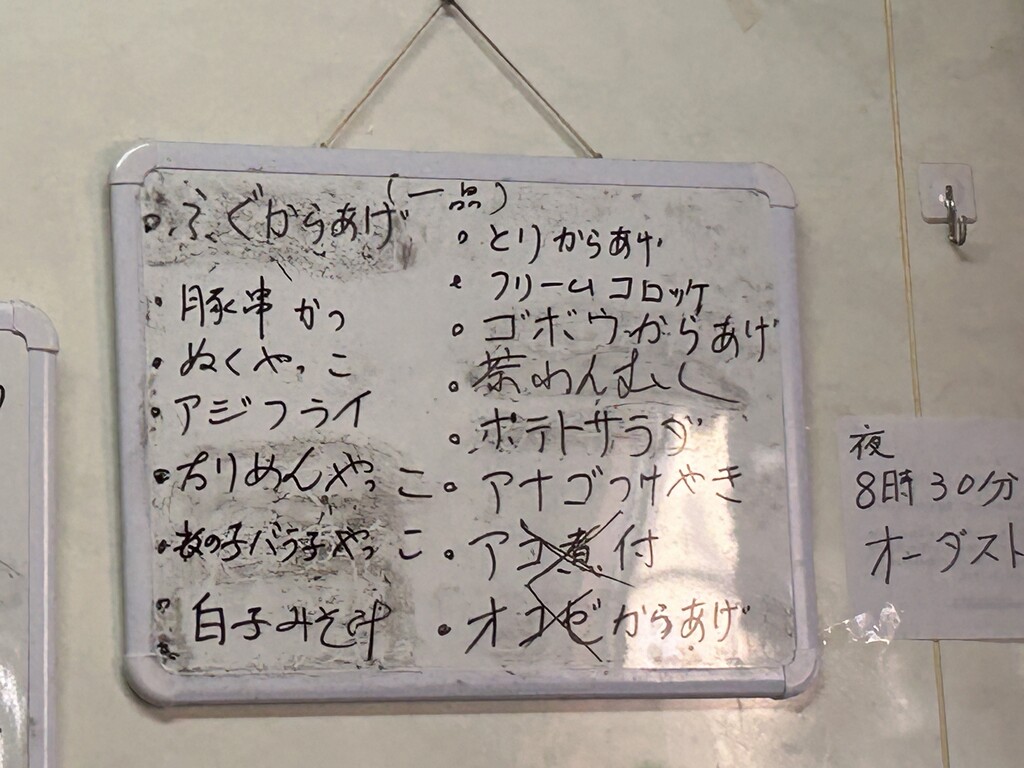 (一品)
・ふぐからあげ
・豚串かつ
・ぬくやっこ
・アジフライ
・ちりめんやっこ
子バラ子やっこ
白子みそ汁
・とりからあげ
・クリームコロッケ
・ゴボウからあげ
・茶わんむし
・ポテトサラダ
・アナゴつけやき
・アコ煮付
・オコゼからあげ
夜
8時30分
オーダスト